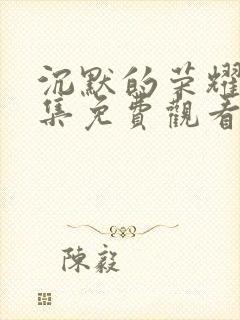 沉默的荣耀
集免費觀看
陳毅